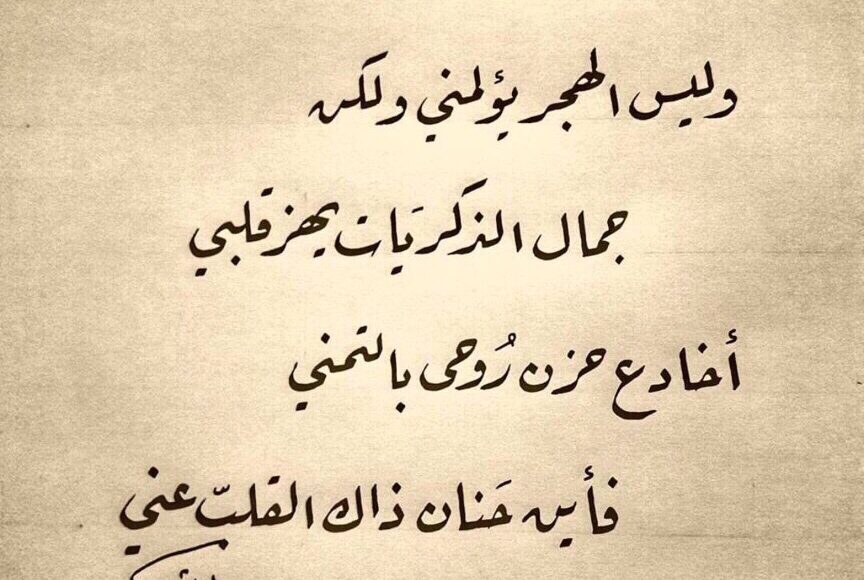 وليس الهجر يؤلمني ولكن
جمال الذكرَيات يهز قلبي
أخادع حزن رُوحى بالتمني
فأين حَنان ذاك القلبّ عني